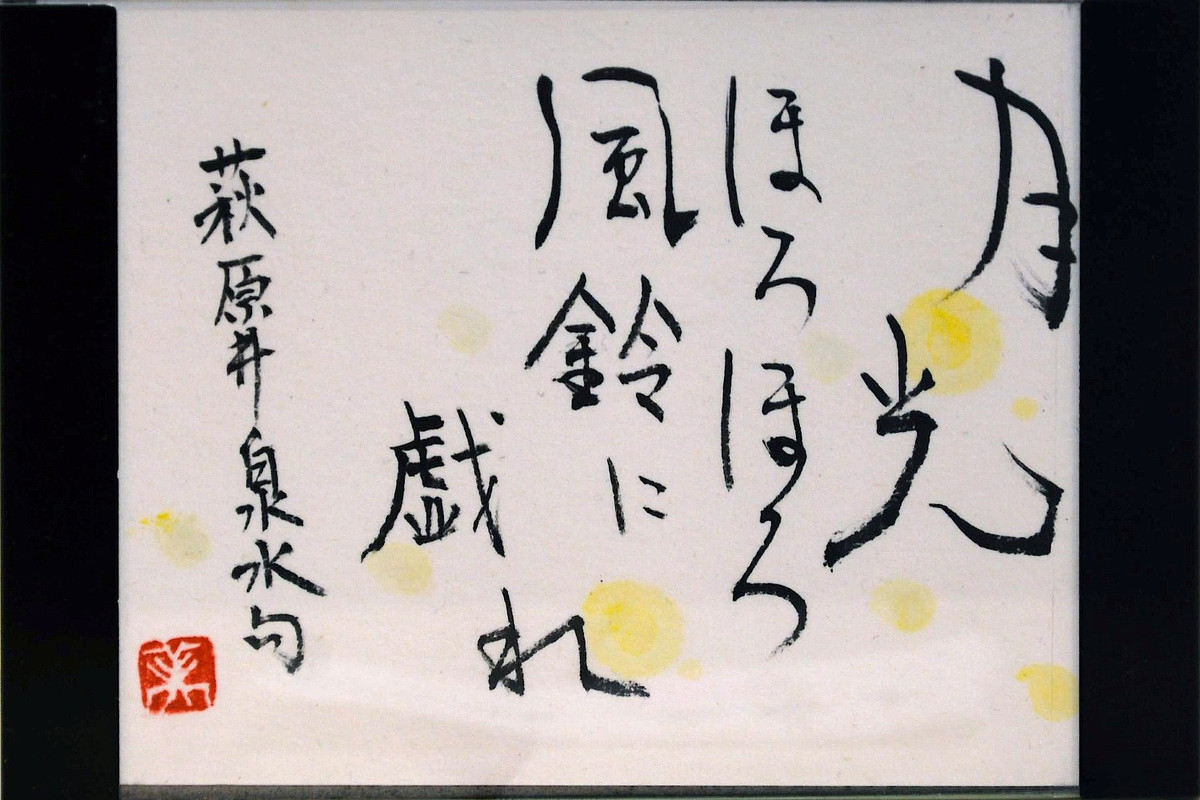 月光
ほろほろ
風鈴に
戯れ
荻原井泉水句
美